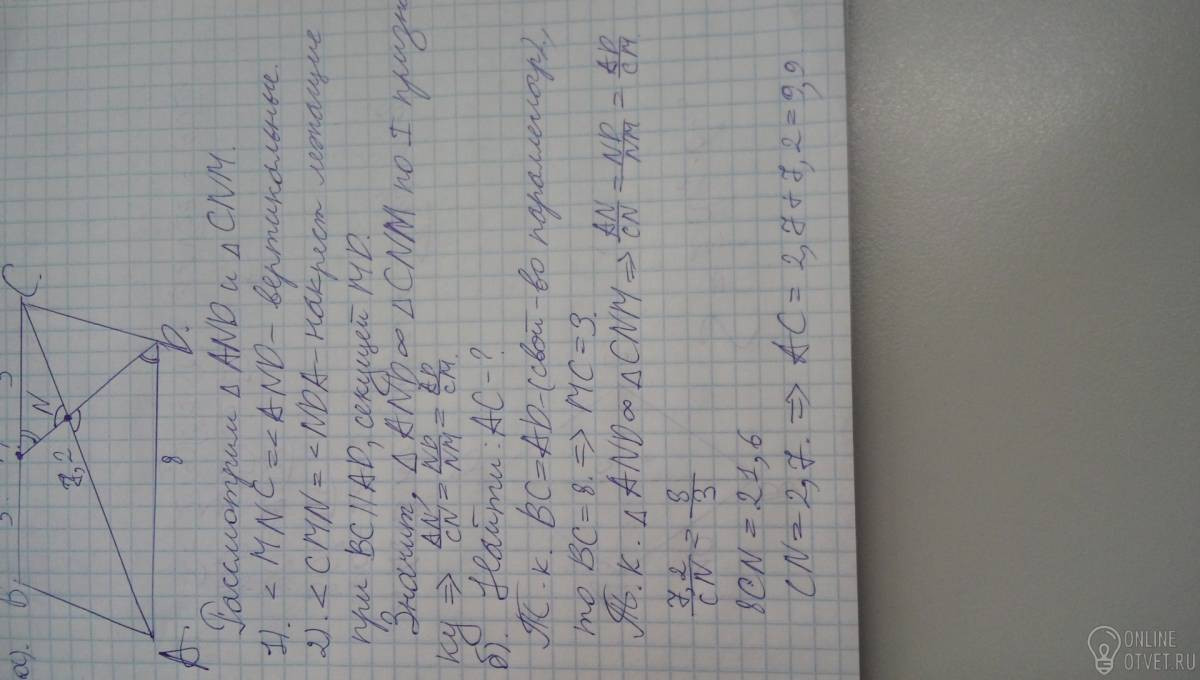 а).
B
5
3
C.
N
7,2
8
A.
D.
Рассмотрим △AND и △CNM.
1). <MNC = <AND – вертикальные.
2). <CMN = <NDA – накрест лежащие
при BC||AD, секущей MD.
Значит, △AND ∞ △CNM по I призна
ку ⇒ AN/CN = ND/NM = AD/CM.
б). Найти: AC – ?
Т.к. BC = AD – (свой-во параллелогр.),
то BC = 8. ⇒ MC = 3.
Т.к. △AND ∞ △CNM ⇒ AN/CN = ND/NM = AD/CM
7,2/CN = 8/3
8CN = 21,6
CN = 2,7. ⇒ AC = 2,7 + 7,2 = 9,9
ONLINE
OTVET.RU